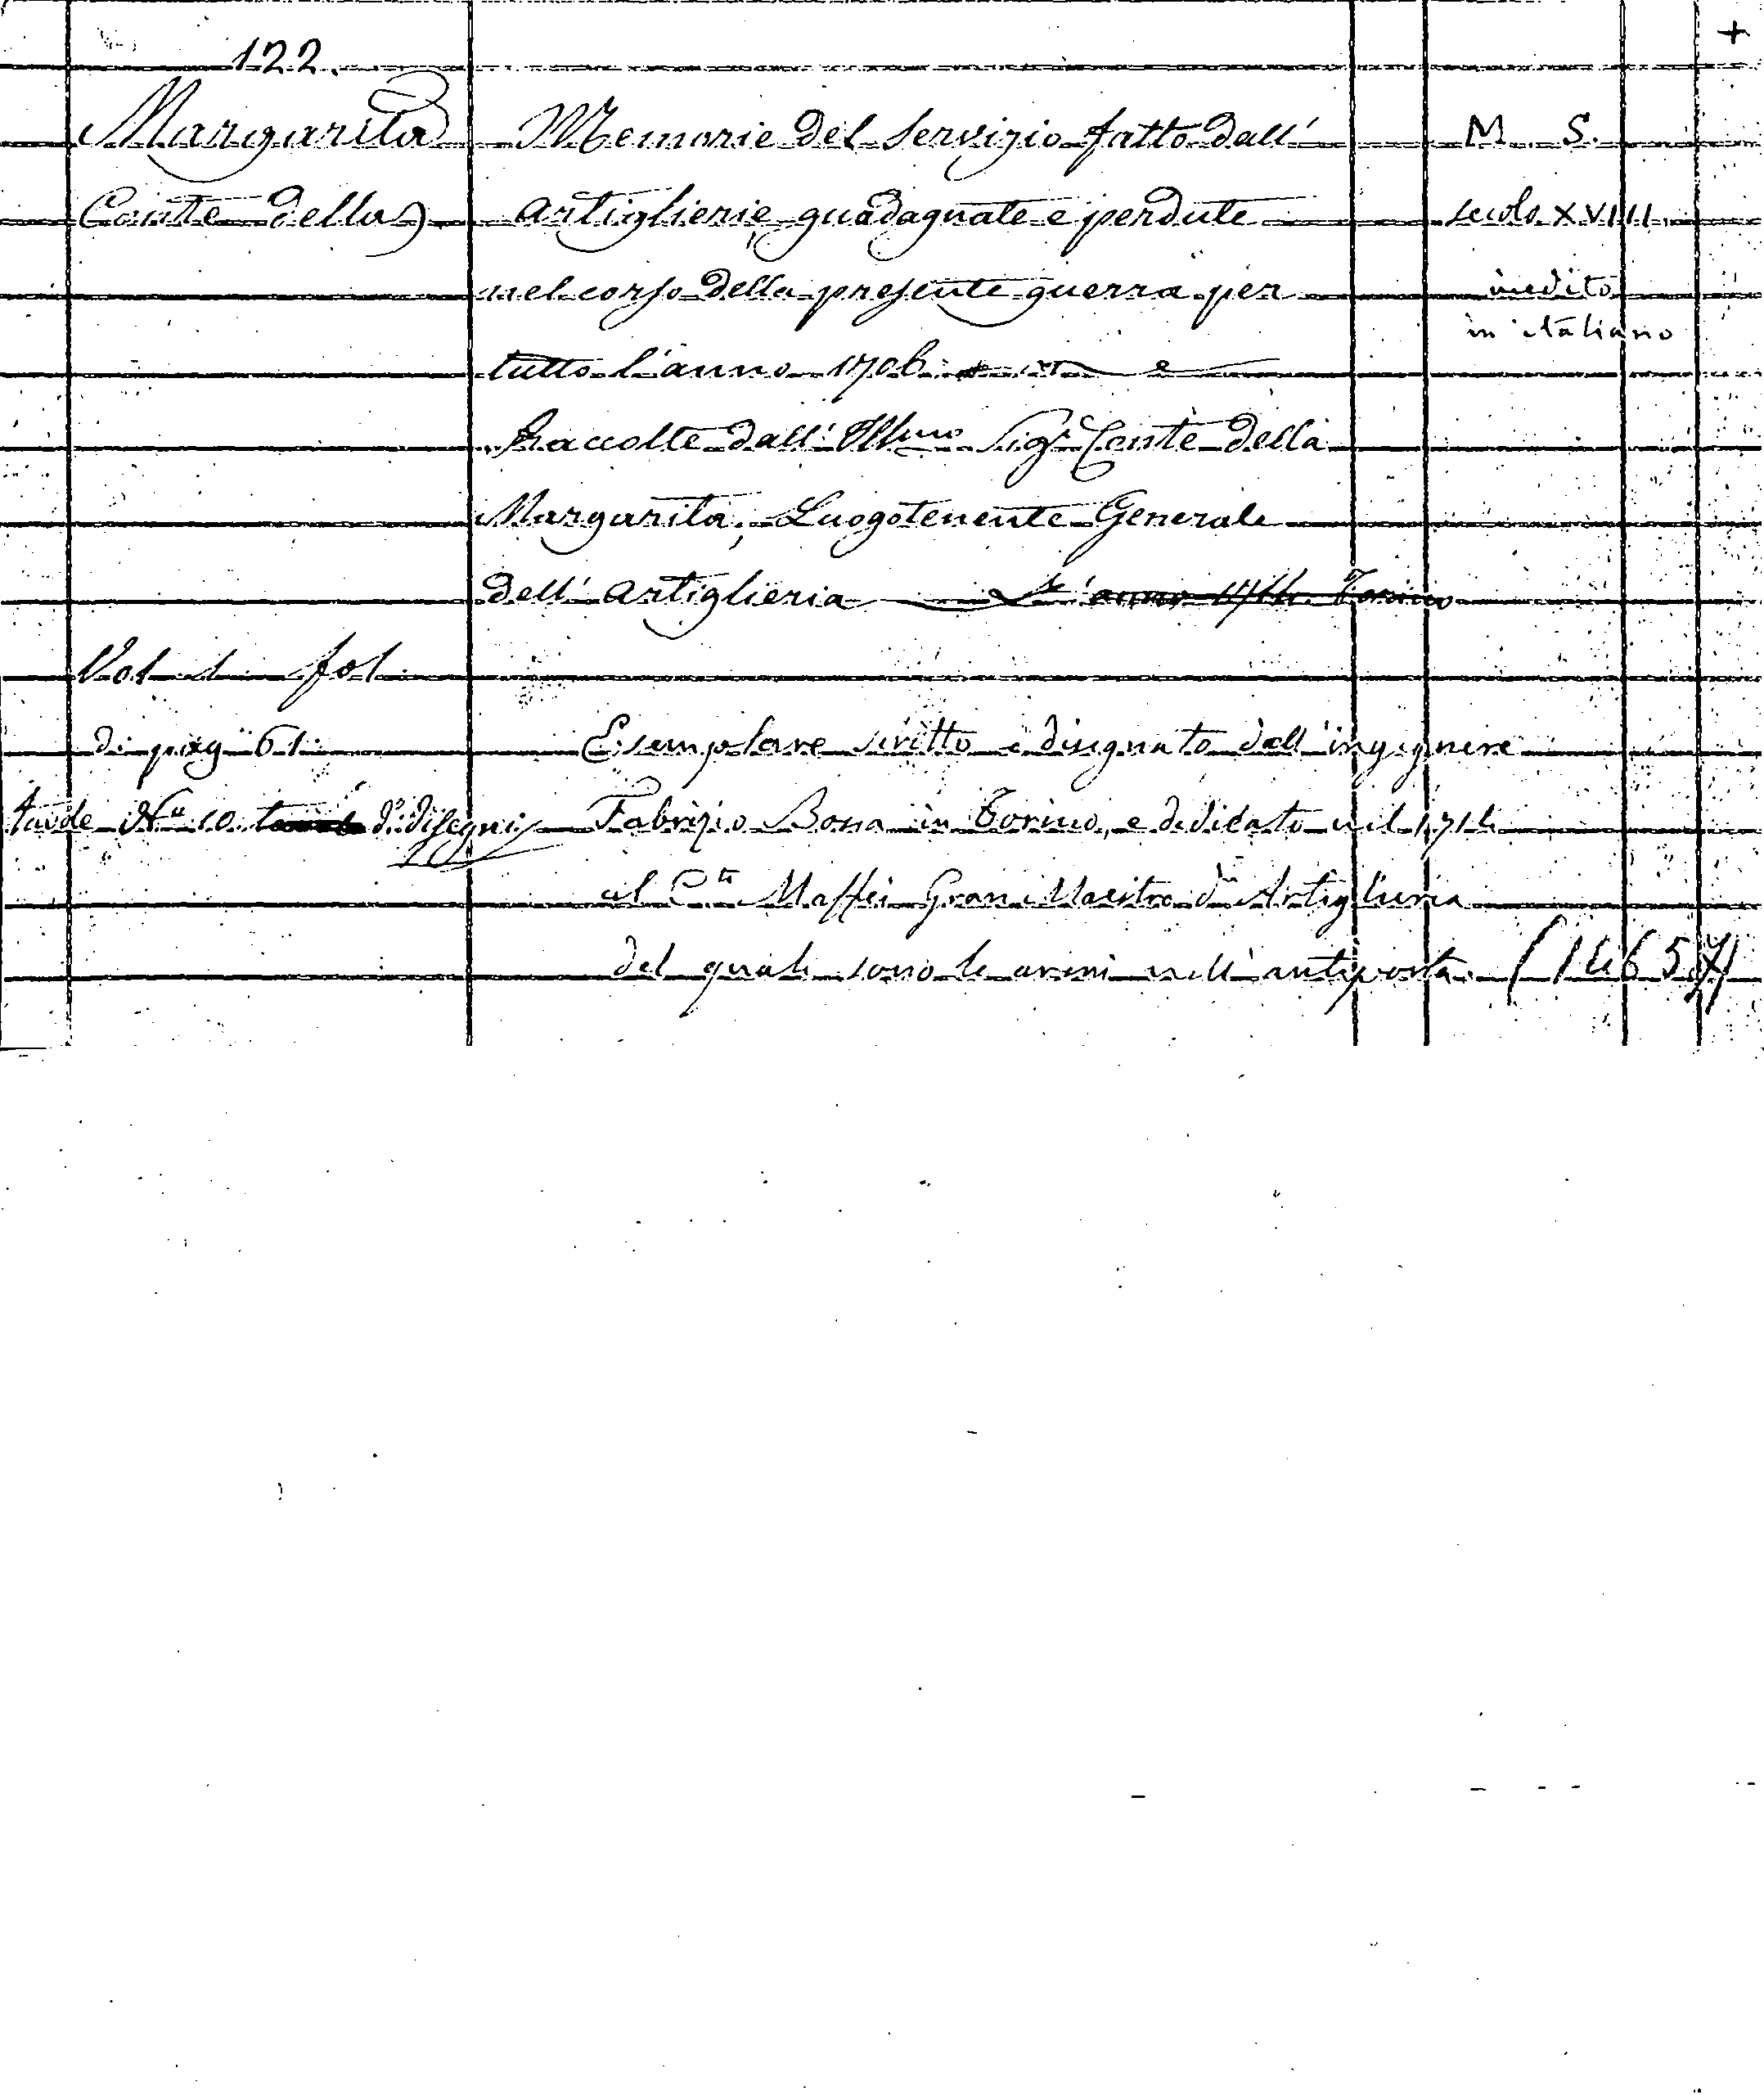 +
122.
Margarita Memorie del servizio fatto dall' M. S.
Conte della) artiglierie, guadagnate e perdute secolo XVIII.
nel corso della presente guerra per inedito
in italiano
tutto l'anno 1706.
Raccolte dall' Illmo Sigr Conte della
Margarita, Luogotenente Generale
dell' artiglieria L' anno 1714. Torino
Vol. 1. fol.
di pag 61. Esemplare scritto e disegnato dall' ingegnere
tavole No 10 di disegni Fabrizio Bossa in Torino, e dedicato nel 1714
al Cte Maffei Gran Maestro di Artiglieria
del quale sono le armi nell' antiporta. (14657)